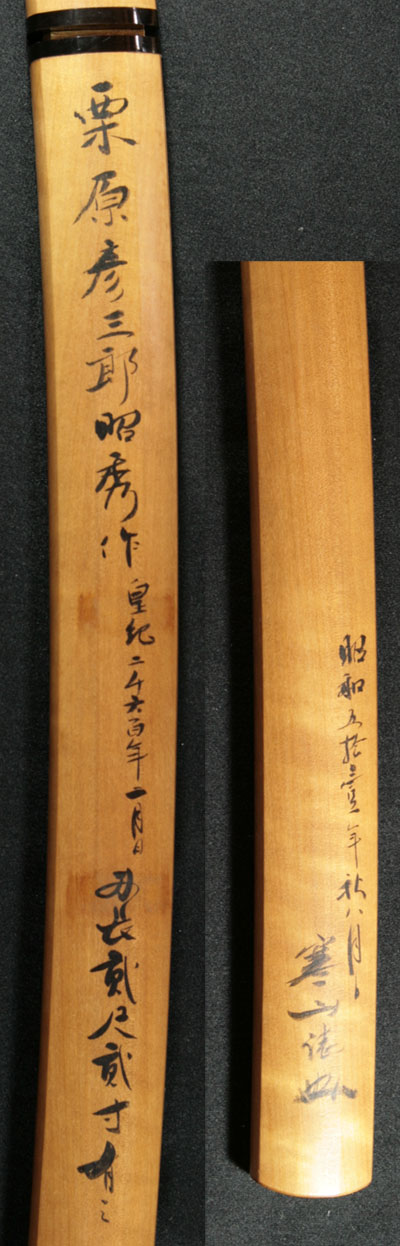 栗原彦三郎昭秀作皇紀二千六百年二月日刃長貳尺貳寸有之
昭和五拾壹年秋八月日
寒山誌